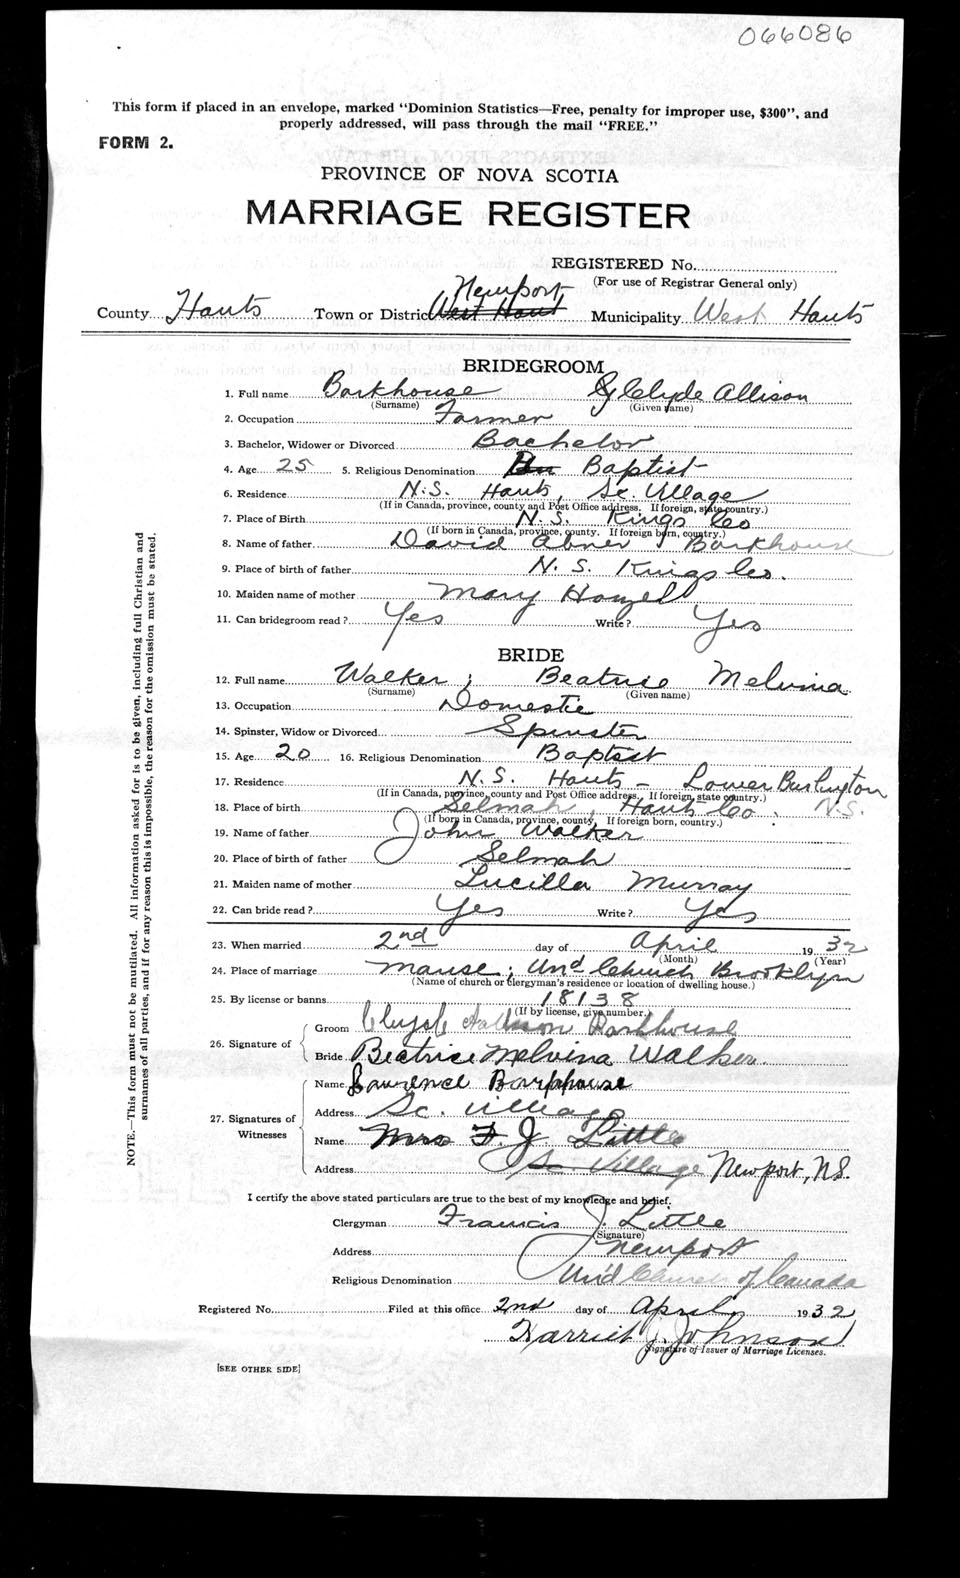 066086
This form if placed in an envelope, marked "Dominion Statistics—Free, penalty for improper use, $300", and
properly addressed, will pass through the mail "FREE."
FORM 2.
PROVINCE OF NOVA SCOTIA
MARRIAGE REGISTER
REGISTERED No.
(For use of Registrar General only)
Newport
County Hants Town or District West Hant Municipality West Hants
BRIDEGROOM
1. Full name Barkhouse Clyde Allison
(Surname) (Given name)
2. Occupation Farmer
3. Bachelor, Widower or Divorced Bachelor
4. Age 25 5. Religious Denomination Baptist
6. Residence N.S. Hants, Sc. Village
(If in Canada, province, county and Post Office address. If foreign, state country.)
7. Place of Birth N.S. Kings Co
(If born in Canada, province, county. If foreign born, country.)
8. Name of father David Abner Barkhouse
9. Place of birth of father N. S. Kings Co.
10. Maiden name of mother Mary
11. Can bridegroom read? Yes Write? Yes
BRIDE
12. Full name Walker; Beatrice Melvina
(Surname) (Given name)
13. Occupation Domestic
14. Spinster, Widow or Divorced Spinster
15. Age 20 16. Religious Denomination Baptist
17. Residence N.S. Hants - Lower Burlington
(If in Canada, province, county and Post Office address. If foreign, state country.)
18. Place of birth Selmah, Hants Co. N.S.
(If born in Canada, province, county, If foreign born, country.)
19. Name of father John Walker
20. Place of birth of father Selmah
21. Maiden name of mother Lucilla Murray
22. Can bride read? Yes Write? Yes
23. When married 2nd day of April 1932
(Month) (Year)
24. Place of marriage Manse; Und Church Brooklyn
(Name of church or clergyman's residence or location of dwelling house.)
25. By license or banns 18138
(If by license, give number.)
26. Signature of
Groom Clyde Allison Barkhouse
Bride Beatrice Melvina Walker
27. Signatures of Witnesses
Name Lawrence Barkhouse
Address Sc. Village
Name Mrs F. J. Little
Address Sc. Village Newport, N.S.
I certify the above stated particulars are true to the best of my knowledge and belief.
Clergyman Francis J. Little
(Signature)
Address Newport
Religious Denomination Un'd Church of Canada
Registered No. Filed at this office 2nd day of April 1932
Harriet J. Johnson
Signature of Issuer of Marriage Licenses.
[SEE OTHER SIDE]
NOTE.—This form must not be mutilated. All information asked for is to be given, including full Christian and
surnames of all parties, and if for any reason this is impossible, the reason for the omission must be stated.